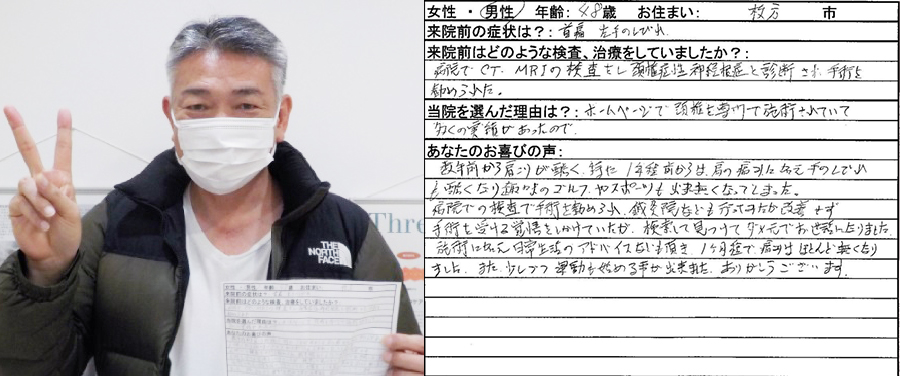 THE
NORTH
FACE
Thre
女性 ・ 男性 年齢: 48歳 お住まい: 枚方 市
来院前の症状は?: 首痛 左手のしびれ
来院前はどのような検査、治療をしていましたか?:
病院でCT、MRIの検査をし頸椎症性神経根症と診断され手術を
勧められた。
当院を選んだ理由は?: ホームページで頸椎を専門で施術されていて
多くの実績があったので。
あなたのお喜びの声:
数年前から肩こりが酷く、特に1年程前からは、肩の痛みに左手のしびれ
も酷くなり趣味のゴルフやスポーツも出来無くなってしまった。
病院での検査で手術を勧められ、鍼灸院なども行ってみたが改善せず
手術を受ける覚悟をしかけていたが、検索して見つけてダメ元でお世話になりました。
施術に加え日常生活のアドバイスなども頂き、1ヶ月程で痛みはほとんど無くなり
ました。また、少しづつ運動も始める事が出来ました。ありがとうございます。
女性 ・ 男性 年齢 歳 お住まい:
来院前の症状は?:
来院前はどのような検査、治療をしていましたか?:
当院を選んだ理由は?:
あなたのお喜びの声: